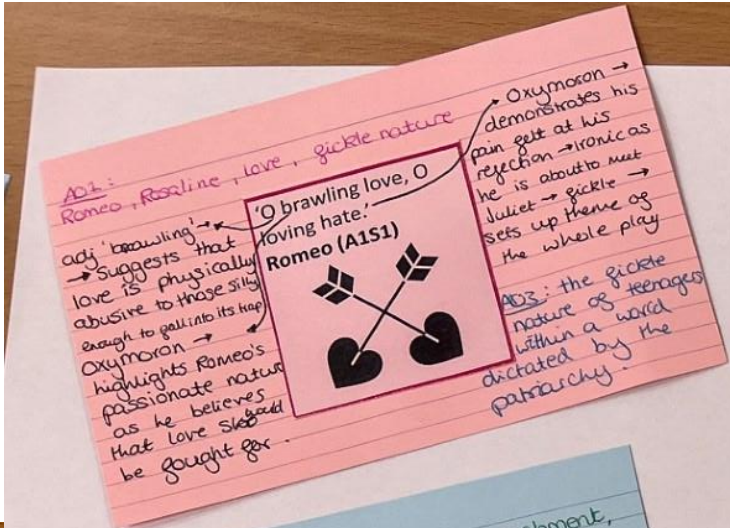 AO1:
Romeo, Rosaline, love, fickle nature
adj 'brawling' →
→ Suggests that
love is physically
abusive to those silly
enough to fall into its trap
Oxymoron →
highlights Romeo's
passionate nature
as he believes
that love should
be fought for.
'O brawling love, O
loving hate.'
Romeo (A1S1)
→ Oxymoron →
demonstrates his
pain felt at his
rejection → ironic as
he is about to meet
Juliet → fickle →
sets up theme of
the whole play
AO3: the fickle
nature of teenagers
within a world
dictated by the
patriarchy.